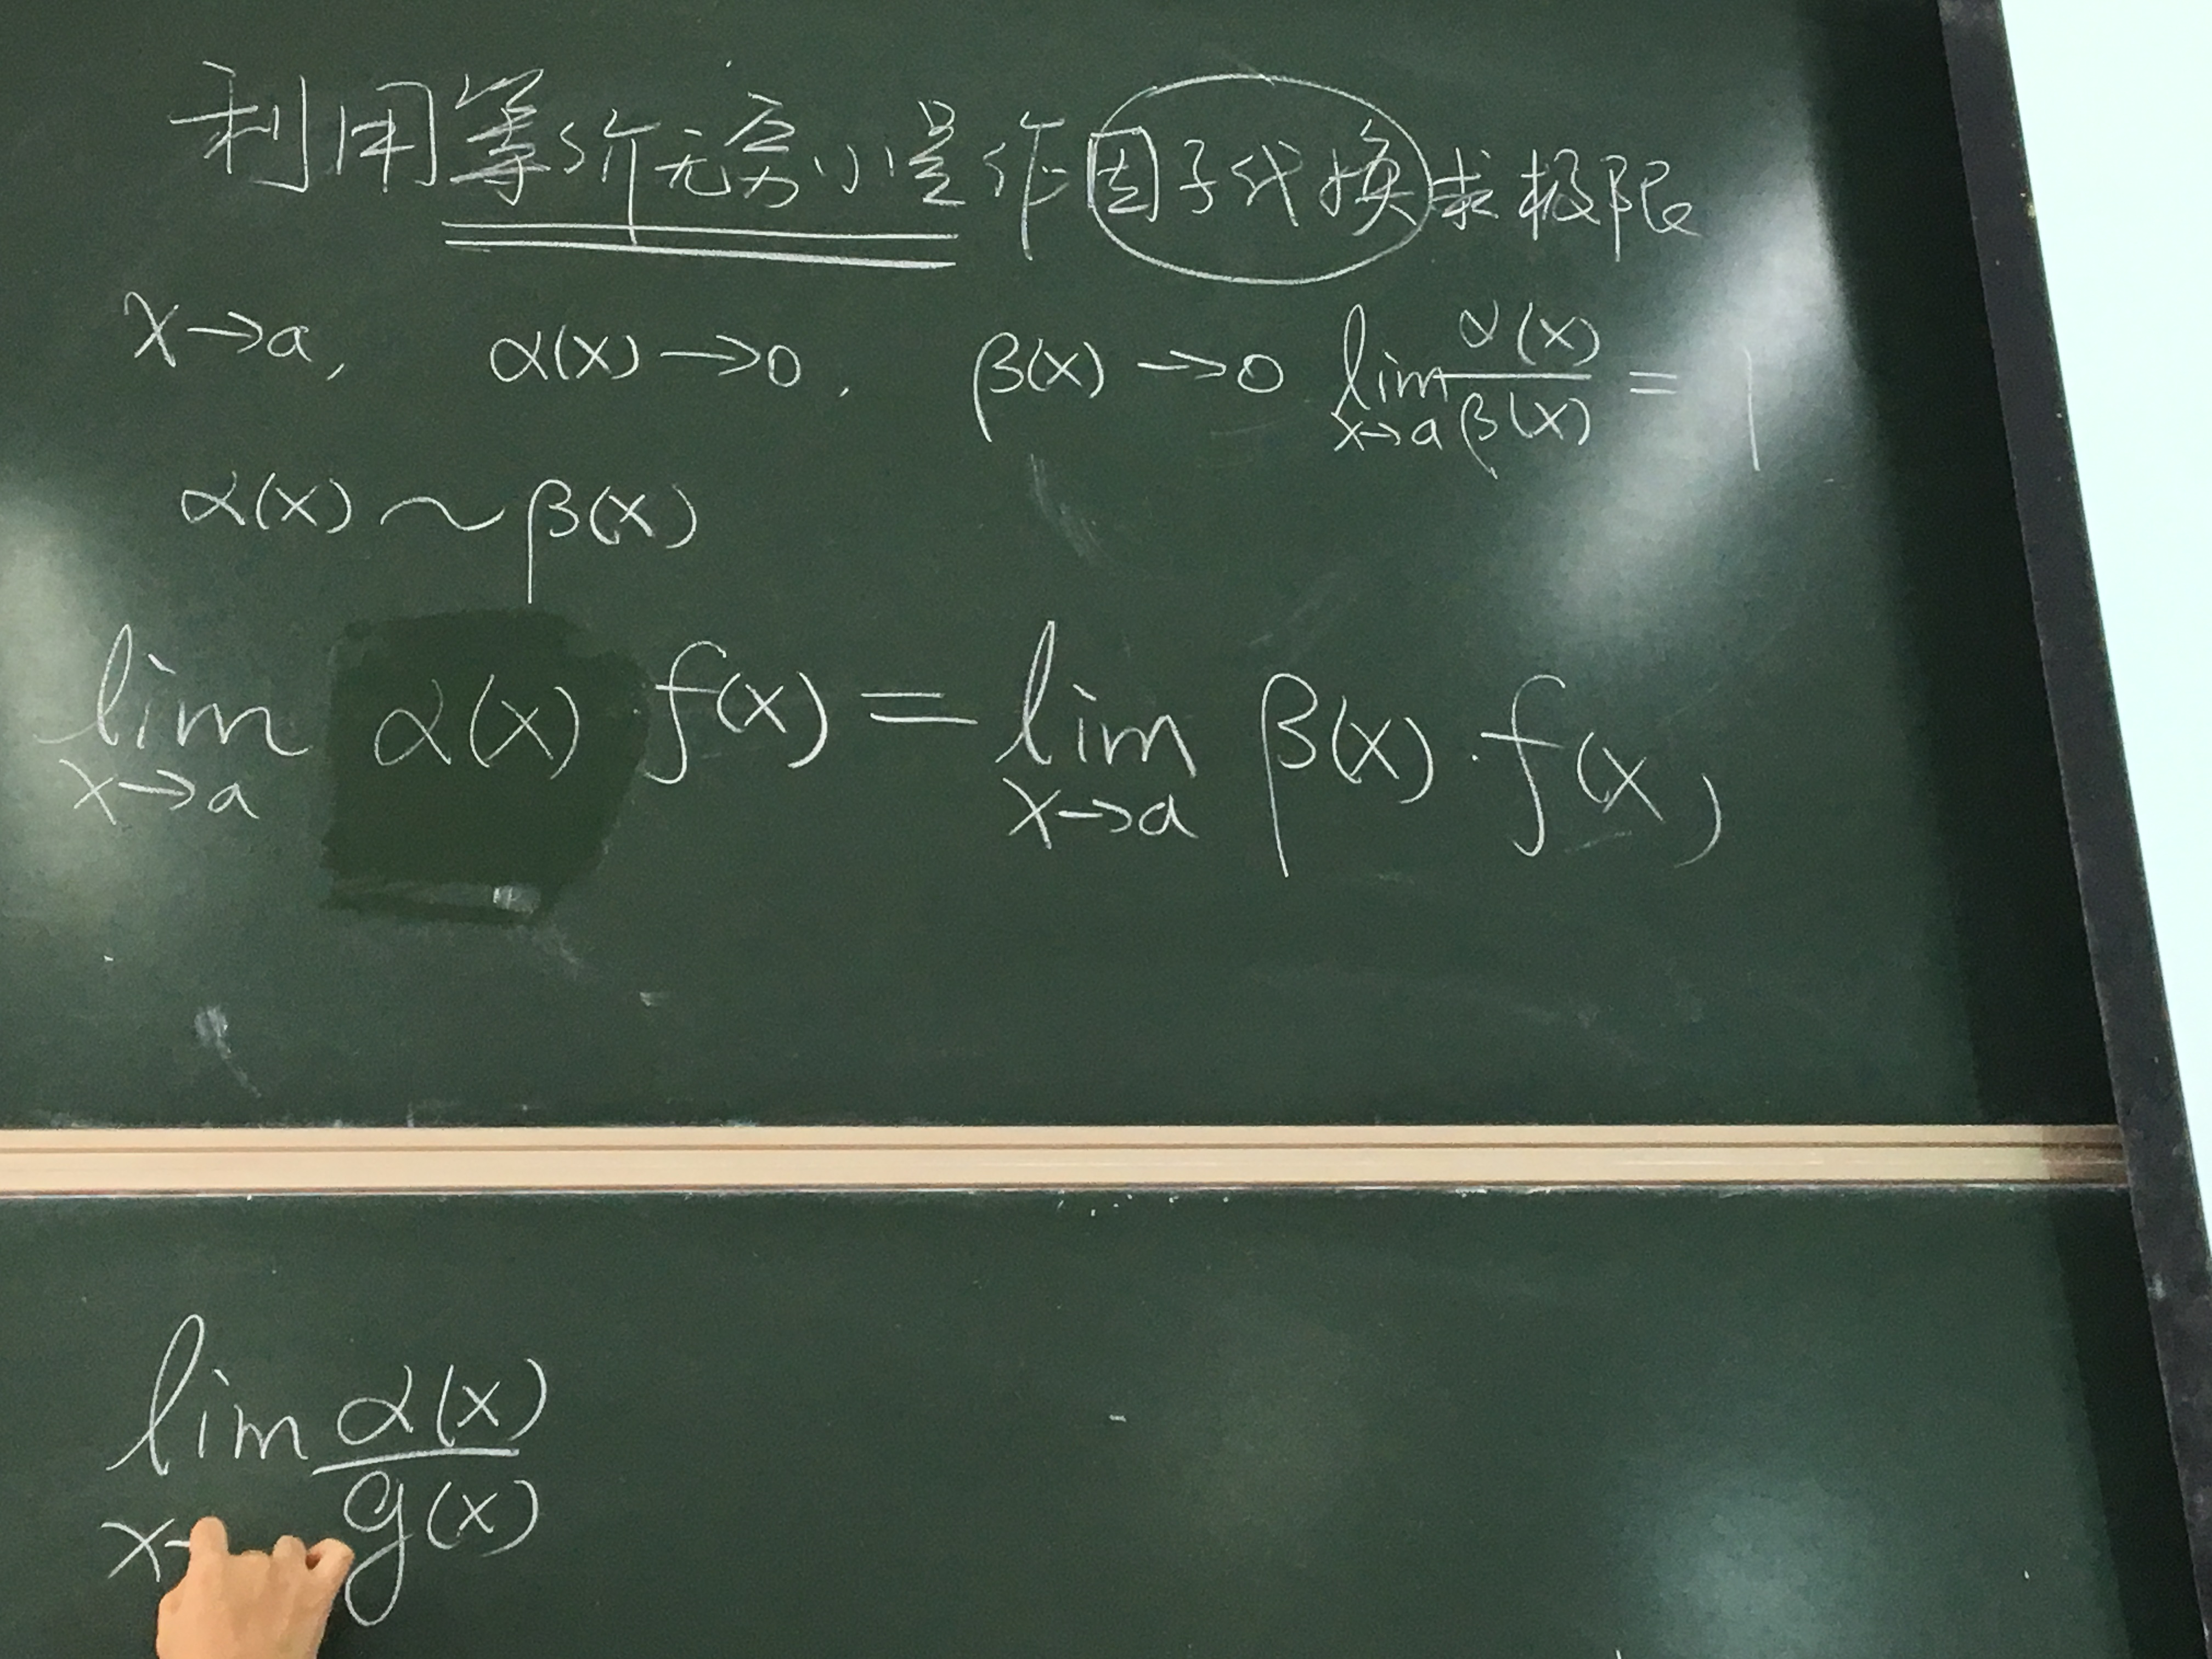 利用等价无穷小量作因子代换求极限
x→a, α(x)→0, β(x)→0 lim x→a α(x)/β(x) = 1
α(x) ~ β(x)
lim x→a α(x) f(x) = lim x→a β(x)·f(x)
lim x→ α(x)/g(x)